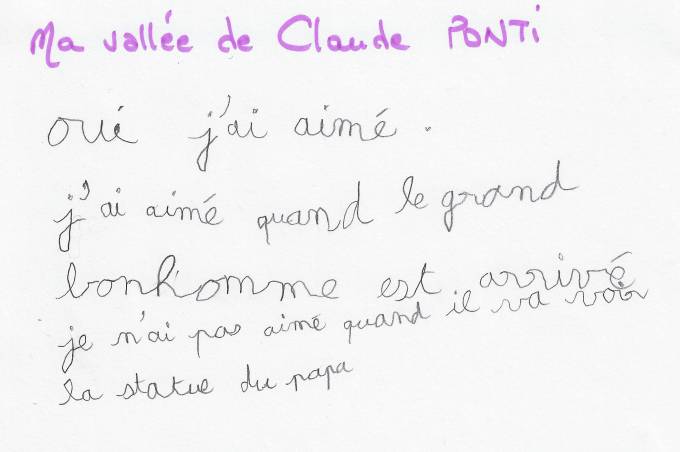 Ma vallée de Claude PONTi
oui j'ai aimé.
j'ai aimé quand le grand
bonhomme est arrivé
je n'ai pas aimé quand il va voir
la statue du papa